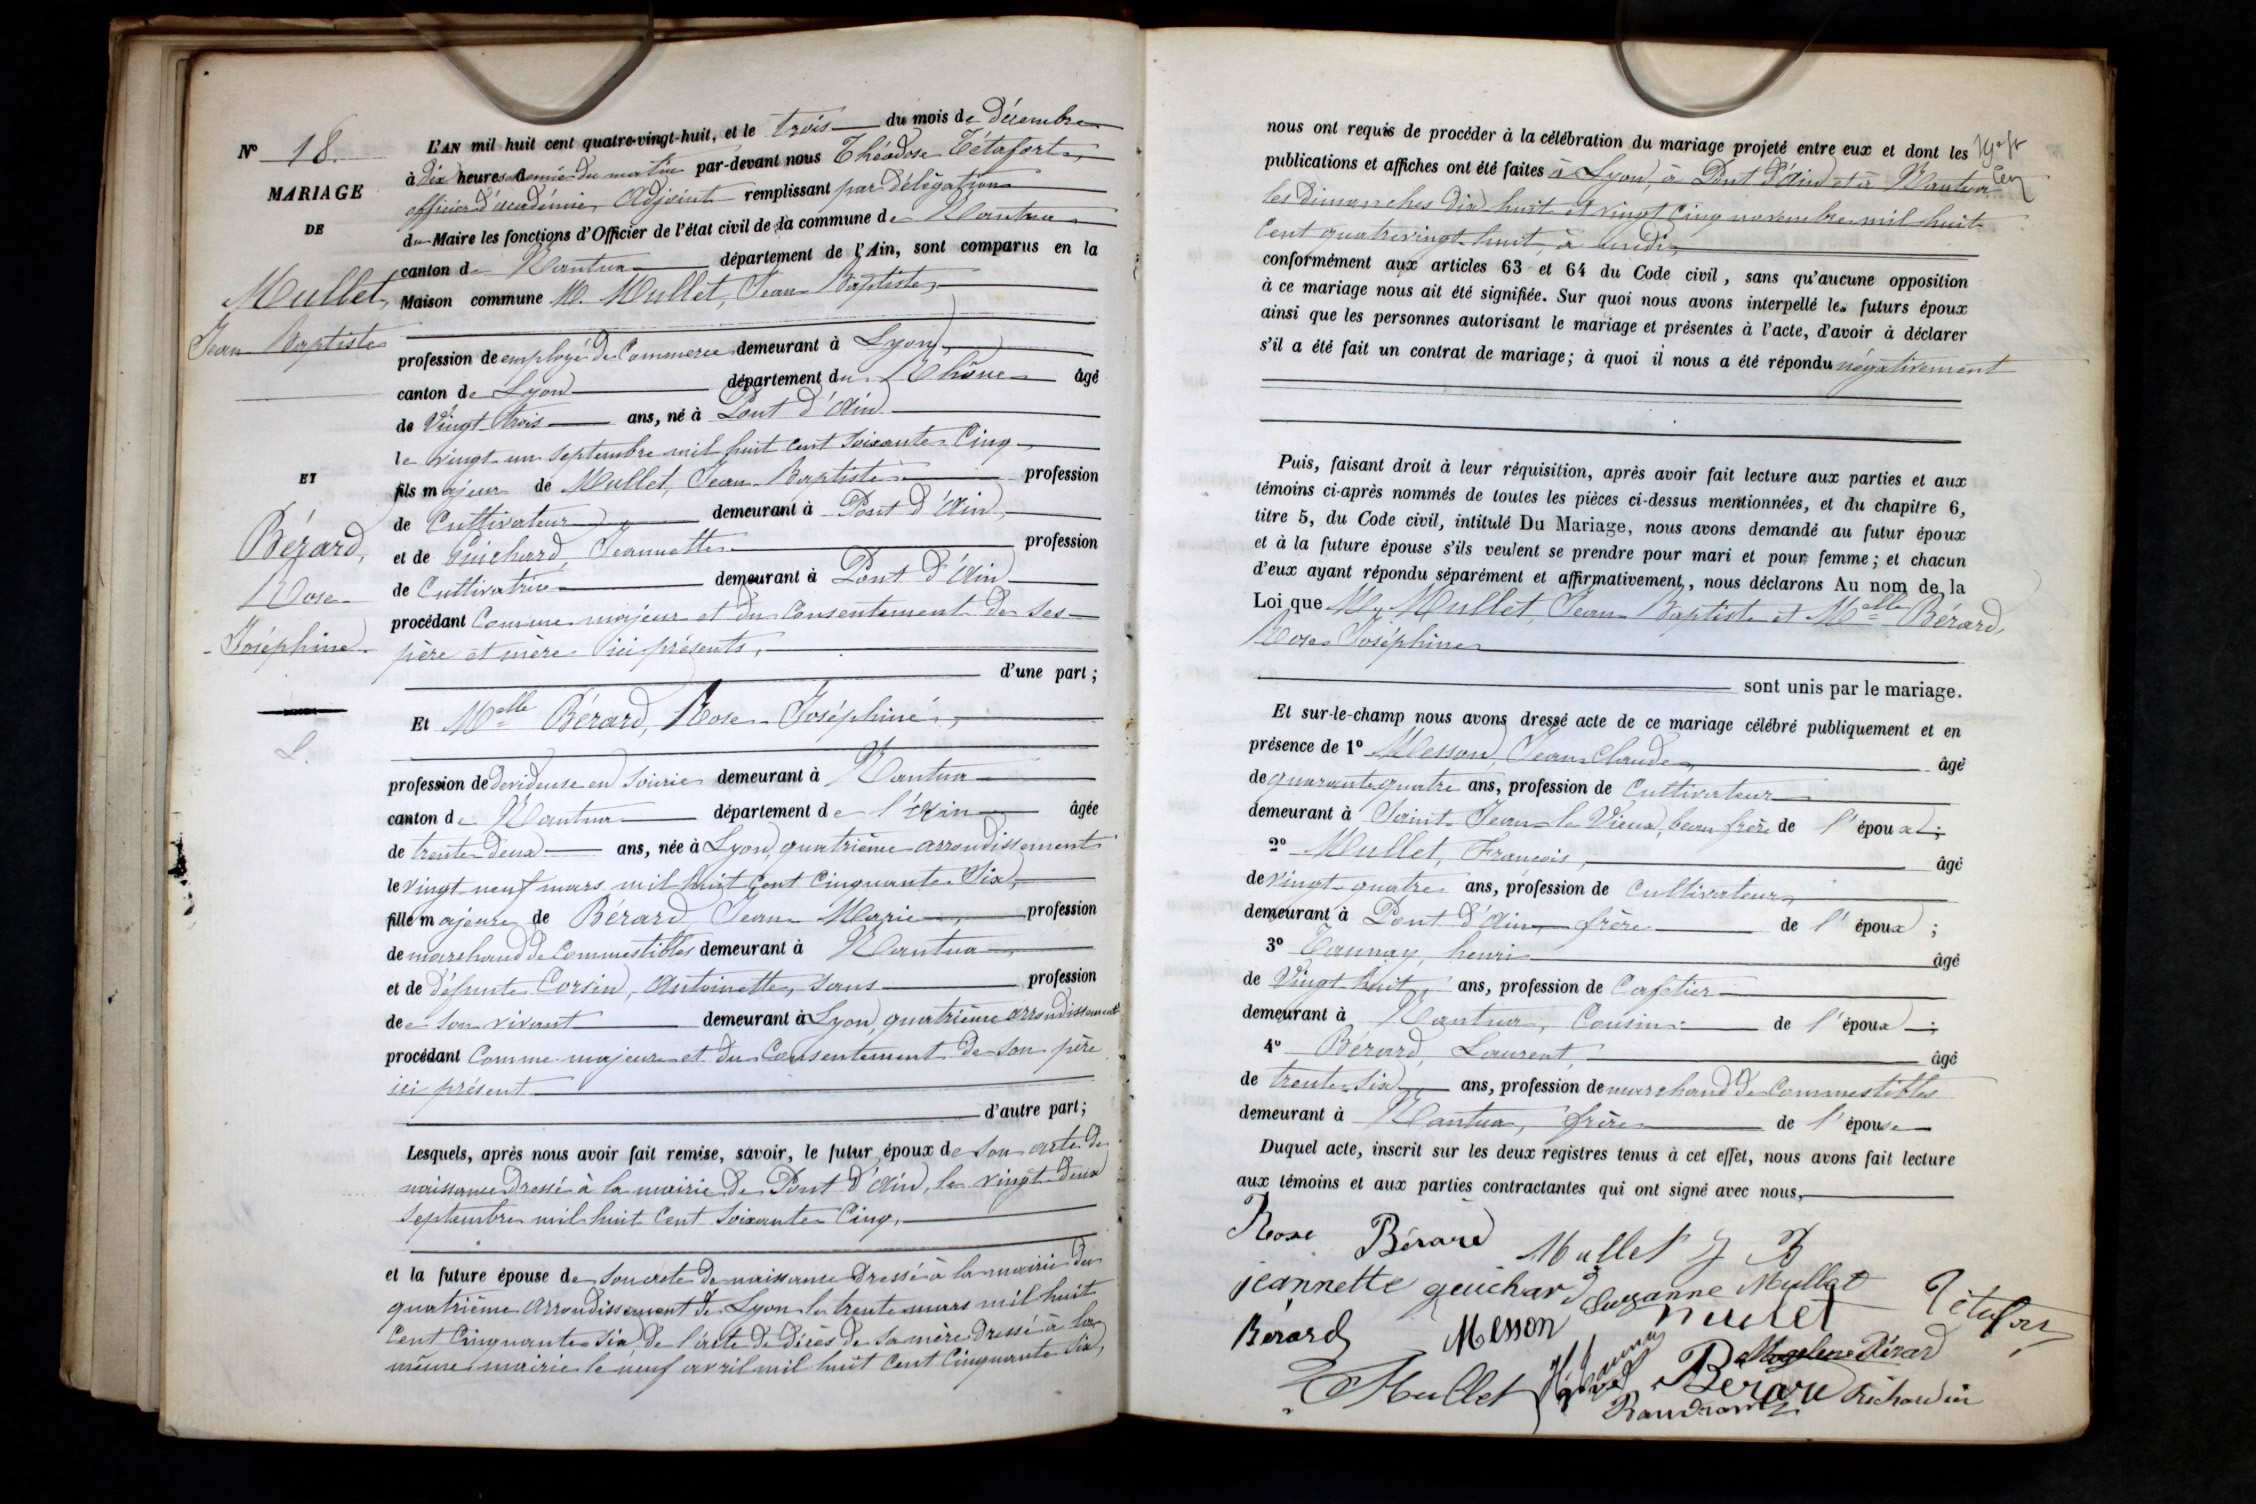 N° 18.
MARIAGE
DE
Mullet,
Jean Baptiste
ET
Bérard,
Rose
Joséphine
L'AN mil huit cent quatre-vingt-huit, et le trois du mois de décembre
à dix heures & demie du matin par-devant nous Théodose Tétafort,
officier d'académie, Adjoint remplissant par délégation
du Maire les fonctions d'Officier de l'état civil de la commune de Nantua
canton de Nantua département de l'Ain, sont comparus en la
Maison commune M. Mullet, Jean Baptiste,
profession de employé de Commerce demeurant à Lyon,
canton de Lyon département du Rhône âgé
de Vingt trois ans, né à Pont d'Ain
le vingt un septembre mil huit cent soixante Cinq
fils majeur de Mullet, Jean Baptiste profession
de Cultivateur demeurant à Pont d'Ain,
et de Guichard, Jeannette profession
de Cultivatrice demeurant à Pont d'Ain
procédant Comme majeur et du Consentement de ses
père et mère ici présents,
d'une part;
Et Melle Bérard, Rose Joséphine,
profession de dévideuse en soierie demeurant à Nantua
canton de Nantua département de l'Ain âgée
de trente deux ans, née à Lyon, quatrième arrondissement
le vingt neuf mars mil huit Cent Cinquante Six,
fille majeure de Bérard Jean Marie, profession
de marchand de Commestibles demeurant à Nantua
et de défunte Corsin, Antoinette, sans profession
de son vivant demeurant à Lyon, quatrième arrondissement
procédant Comme majeure et du Consentement de son père
ici présent
d'autre part;
Lesquels, après nous avoir fait remise, savoir, le futur époux de son acte de
naissance dressé à la mairie de Pont d'Ain, le vingt deux
septembre mil huit Cent soixante Cinq,
et la future épouse de son acte de naissance dressé à la mairie du
quatrième arrondissement de Lyon le trente mars mil huit
Cent Cinquante Six, de l'acte de décès de sa mère dressé à la
même mairie le neuf avril mil huit Cent Cinquante Six,
nous ont requis de procéder à la célébration du mariage projeté entre eux et dont les
publications et affiches ont été faites à Lyon, à Pont d'Ain et à Nantua
les dimanches dix huit et vingt Cinq novembre mil huit
Cent quatrevingt huit à midi,
conformément aux articles 63 et 64 du Code civil, sans qu'aucune opposition
à ce mariage nous ait été signifiée. Sur quoi nous avons interpellé les futurs époux
ainsi que les personnes autorisant le mariage et présentes à l'acte, d'avoir à déclarer
s'il a été fait un contrat de mariage; à quoi il nous a été répondu négativement
Puis, faisant droit à leur réquisition, après avoir fait lecture aux parties et aux
témoins ci-après nommés de toutes les pièces ci-dessus mentionnées, et du chapitre 6,
titre 5, du Code civil, intitulé Du Mariage, nous avons demandé au futur époux
et à la future épouse s'ils veulent se prendre pour mari et pour femme; et chacun
d'eux ayant répondu séparément et affirmativement, nous déclarons Au nom de la
Loi que M. Mullet, Jean Baptiste et Melle Bérard,
Rose Joséphine
sont unis par le mariage.
Et sur-le-champ nous avons dressé acte de ce mariage célébré publiquement et en
présence de 1° Messon, Jean Claude, âgé
de quarante quatre ans, profession de Cultivateur
demeurant à Saint Jean le Vieux, beau frère de l'époux;
2° Mullet, François, âgé
de vingt quatre ans, profession de Cultivateur,
demeurant à Pont d'Ain frère de l'époux;
3° Taunay, henri âgé
de Vingt huit, ans, profession de Cafetier
demeurant à Nantua, Cousin de l'époux;
4° Bérard, Laurent, âgé
de trente six ans, profession de marchand de Commestibles
demeurant à Nantua, frère de l'épouse
Duquel acte, inscrit sur les deux registres tenus à cet effet, nous avons fait lecture
aux témoins et aux parties contractantes qui ont signé avec nous,
Rose Bérard Mullet J B
jeannette guichard Suzanne Mullet Tétafort
Bérard Messon mulet
Bérard
Mullet Bérard Richardin